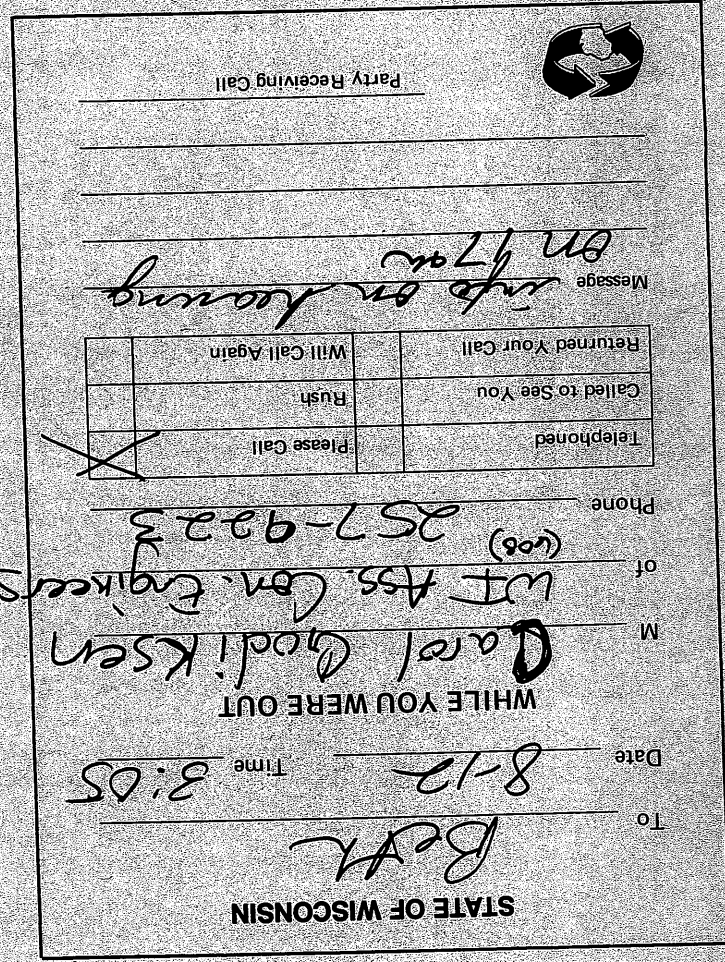 STATE OF WISCONSIN
To Beth
Date 8-12 Time 3:05
WHILE YOU WERE OUT
M Carol Godiksen
of WI Ass. Con. Engineers
Phone (608) 257-9223
Telephoned Please Call X
Called to See You Rush
Returned Your Call Will Call Again
Message info on hearing
on 17th
Party Receiving Call